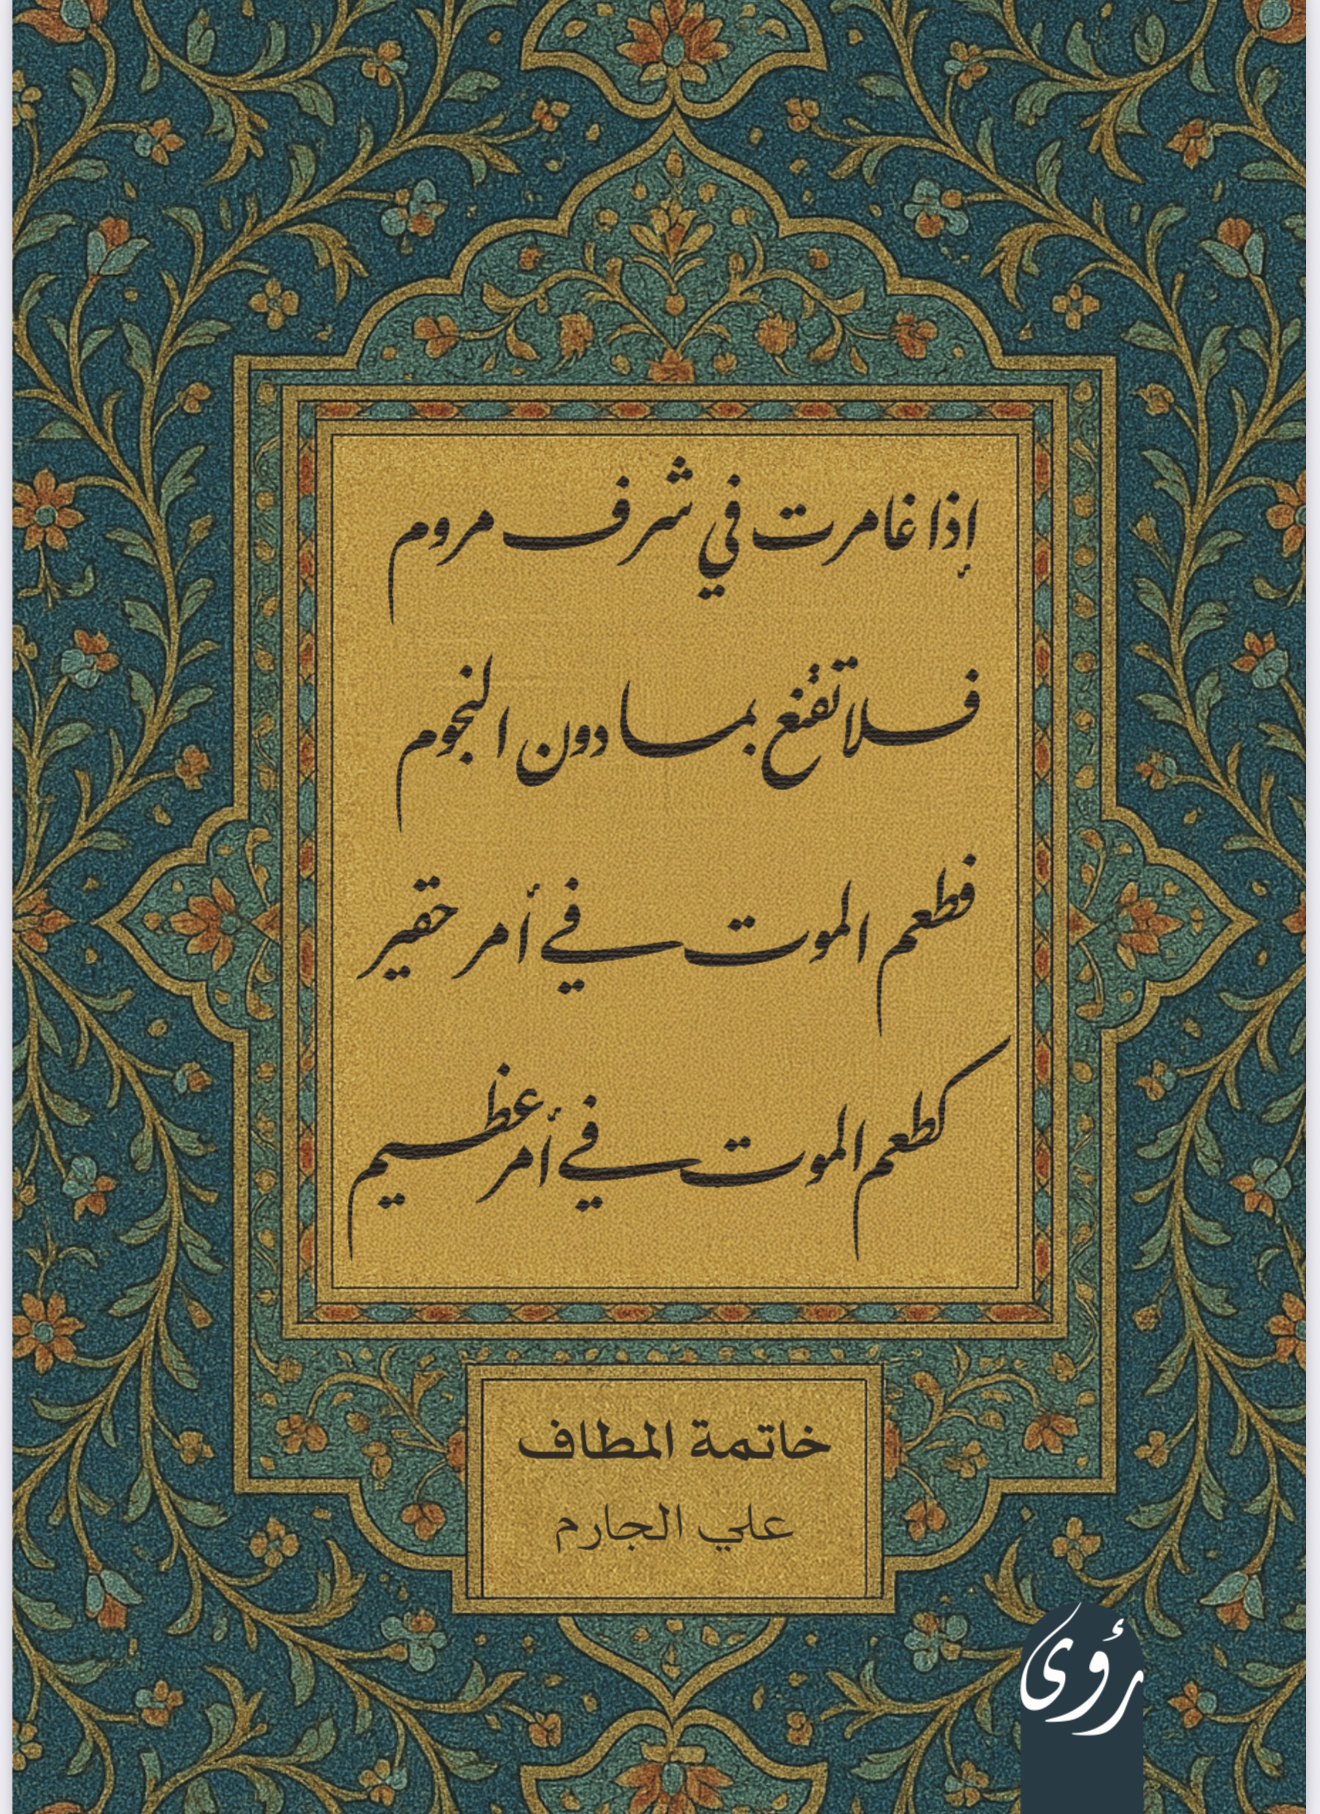 إذا غامرت في شرف مروم
فلا تقنع بما دون النجوم
فطعم الموت في أمر حقير
كطعم الموت في أمر عظيم
خاتمة المطاف
علي الجارم
رؤى